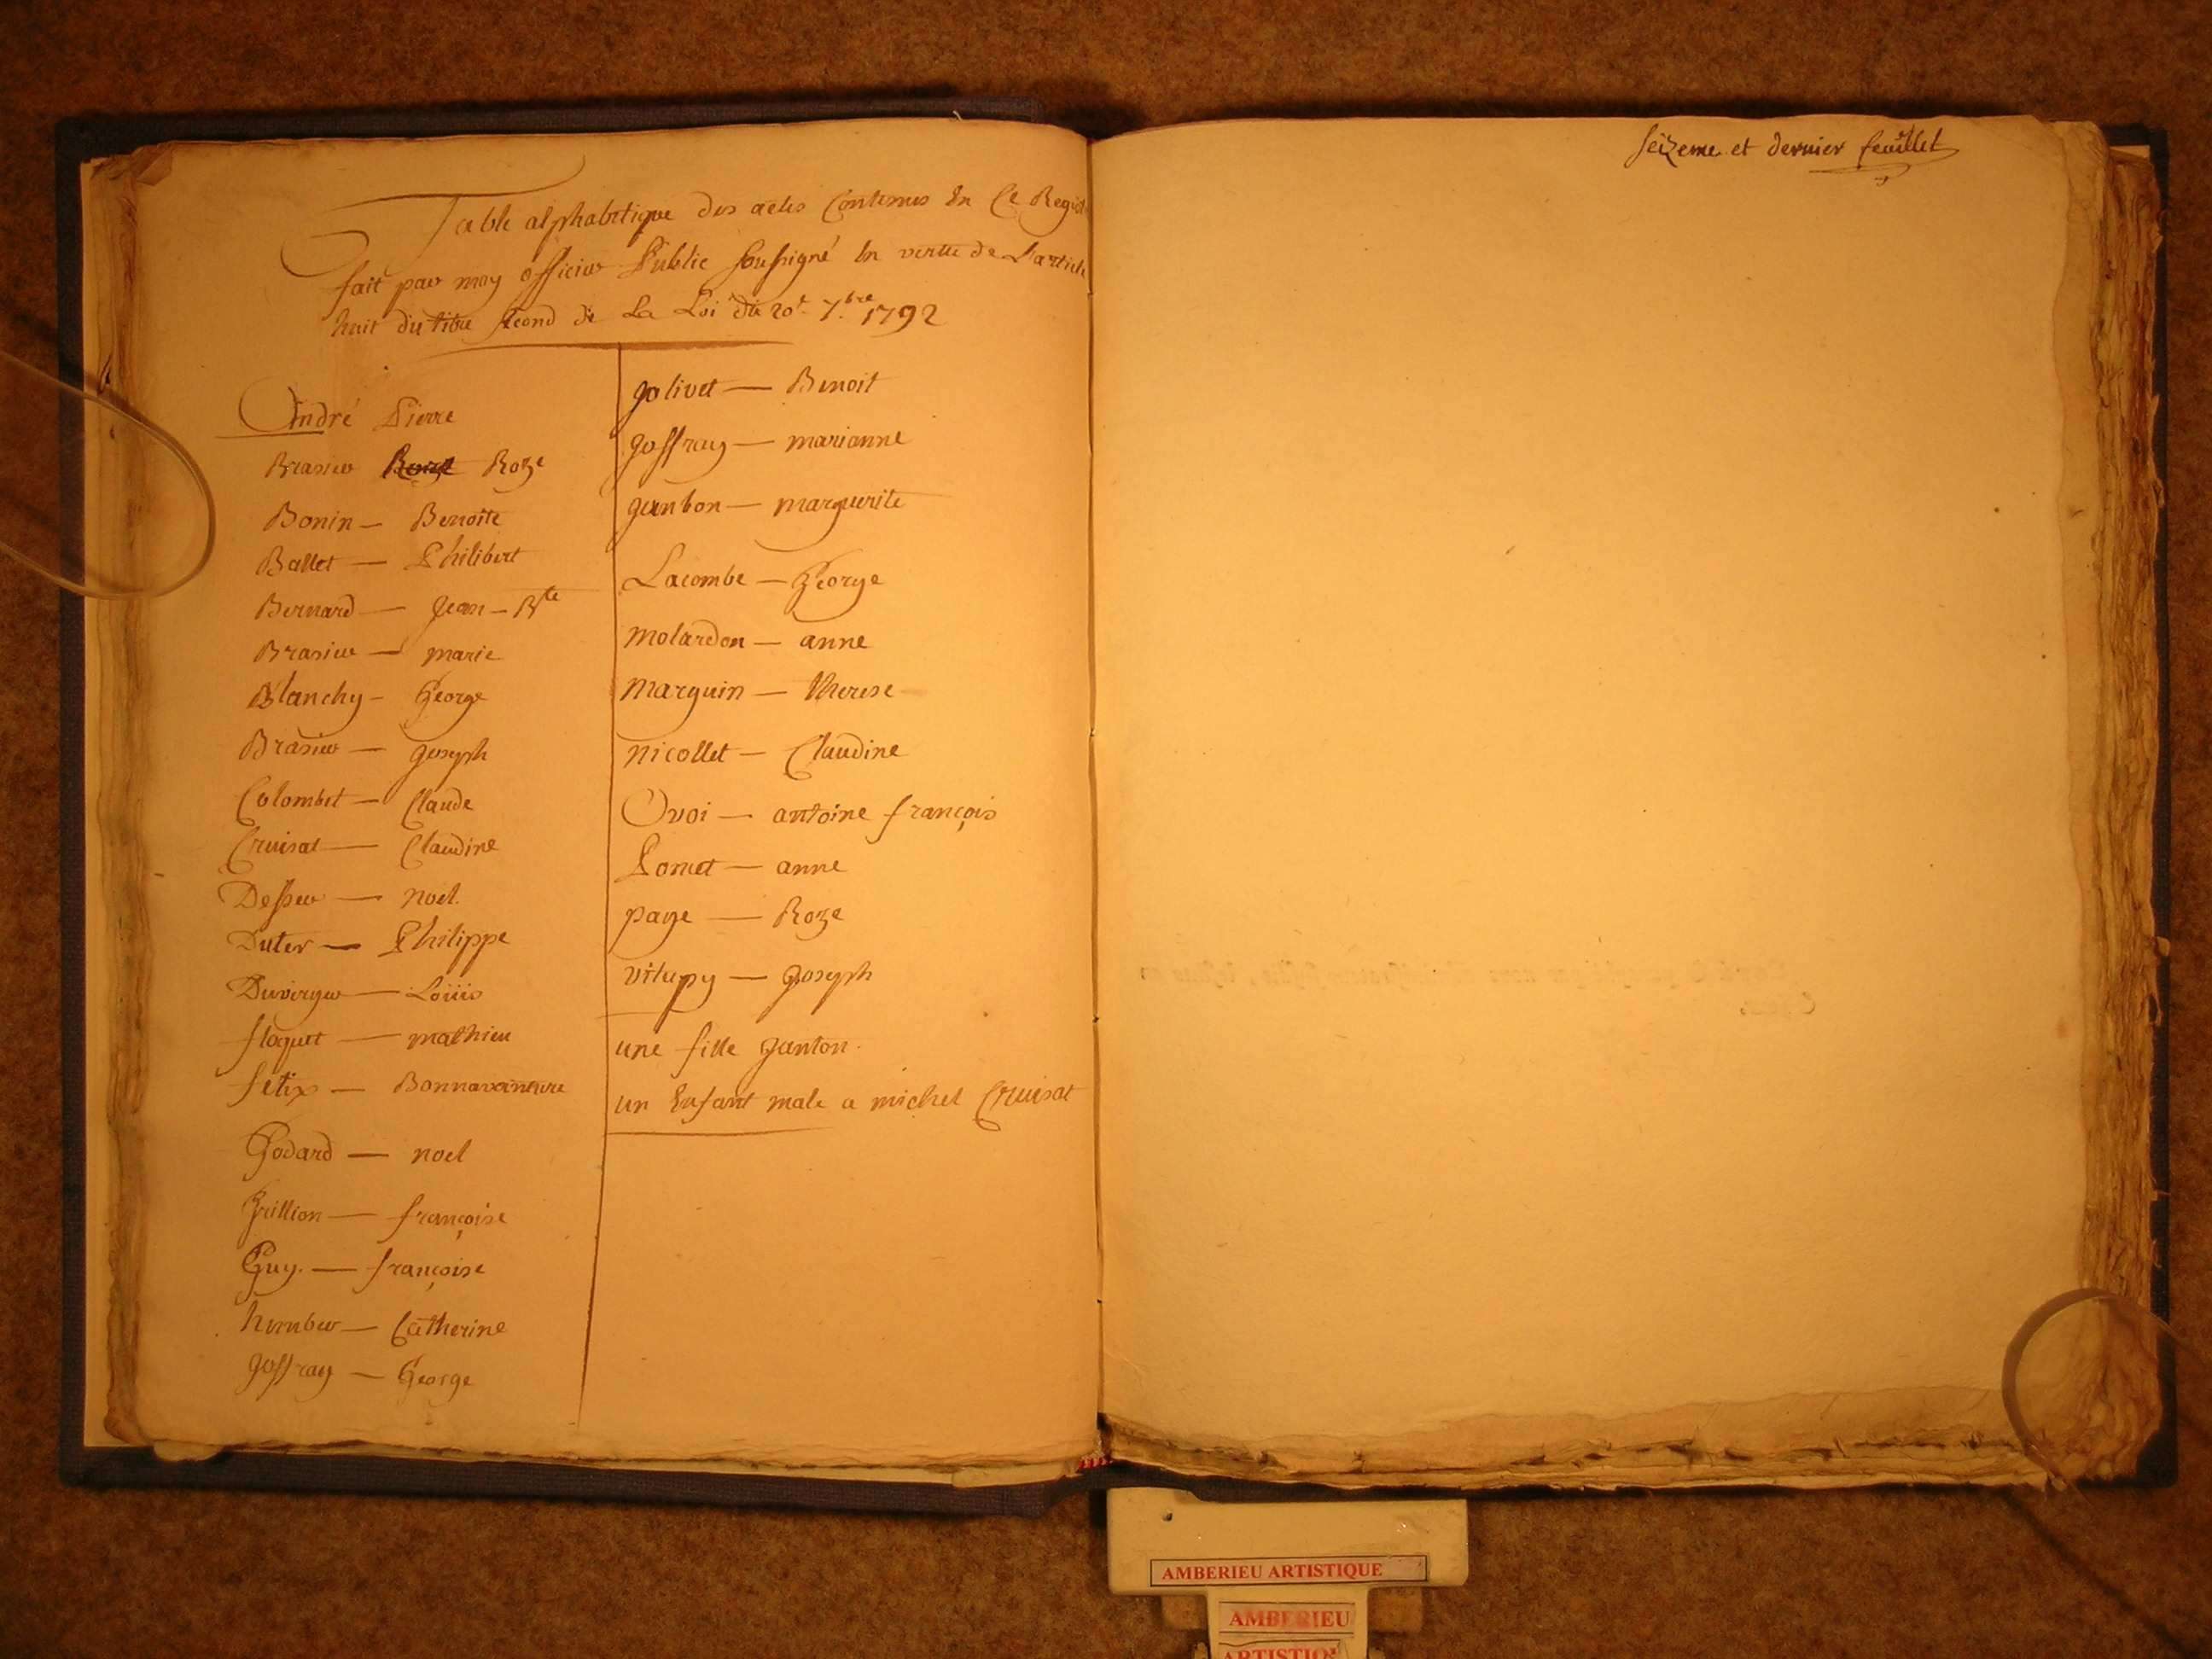 Table alphabetique des actes Contenus En Ce Regist
fait par moy officier Public soussigné En vertu de L'article
huit du titre second de La Loi du 20e 7.bre 1792
André Pierre
Brasier Roze
Bonin — Benoite
Ballet — Philibert
Bernard — Jean — Bte
Brasier — marie
Blanchy — George
Brasier — joseph
Colombet — Claude
Cruisat — Claudine
Desser — noel.
Duter — Philippe
Duverger — Loüis
floquet — mathieu
felix — Bonnavanture
Godard — noel
Grillion — françoise
Guy. — françoise
humber — Catherine
joffray — George
jolivet — Benoit
joffray — marianne
janbon — marguerite
Lacombe — George
molardon — anne
marguin — therese
nicollet — Claudine
Ovoi — antoine françois
Pomet — anne
page — Roze
vitupy — joseph
une fille janton.
un Enfant male a michel Cruisat
seizeme et dernier feuillet
AMBERIEU ARTISTIQUE
AMBERIEU
ARTISTIQ